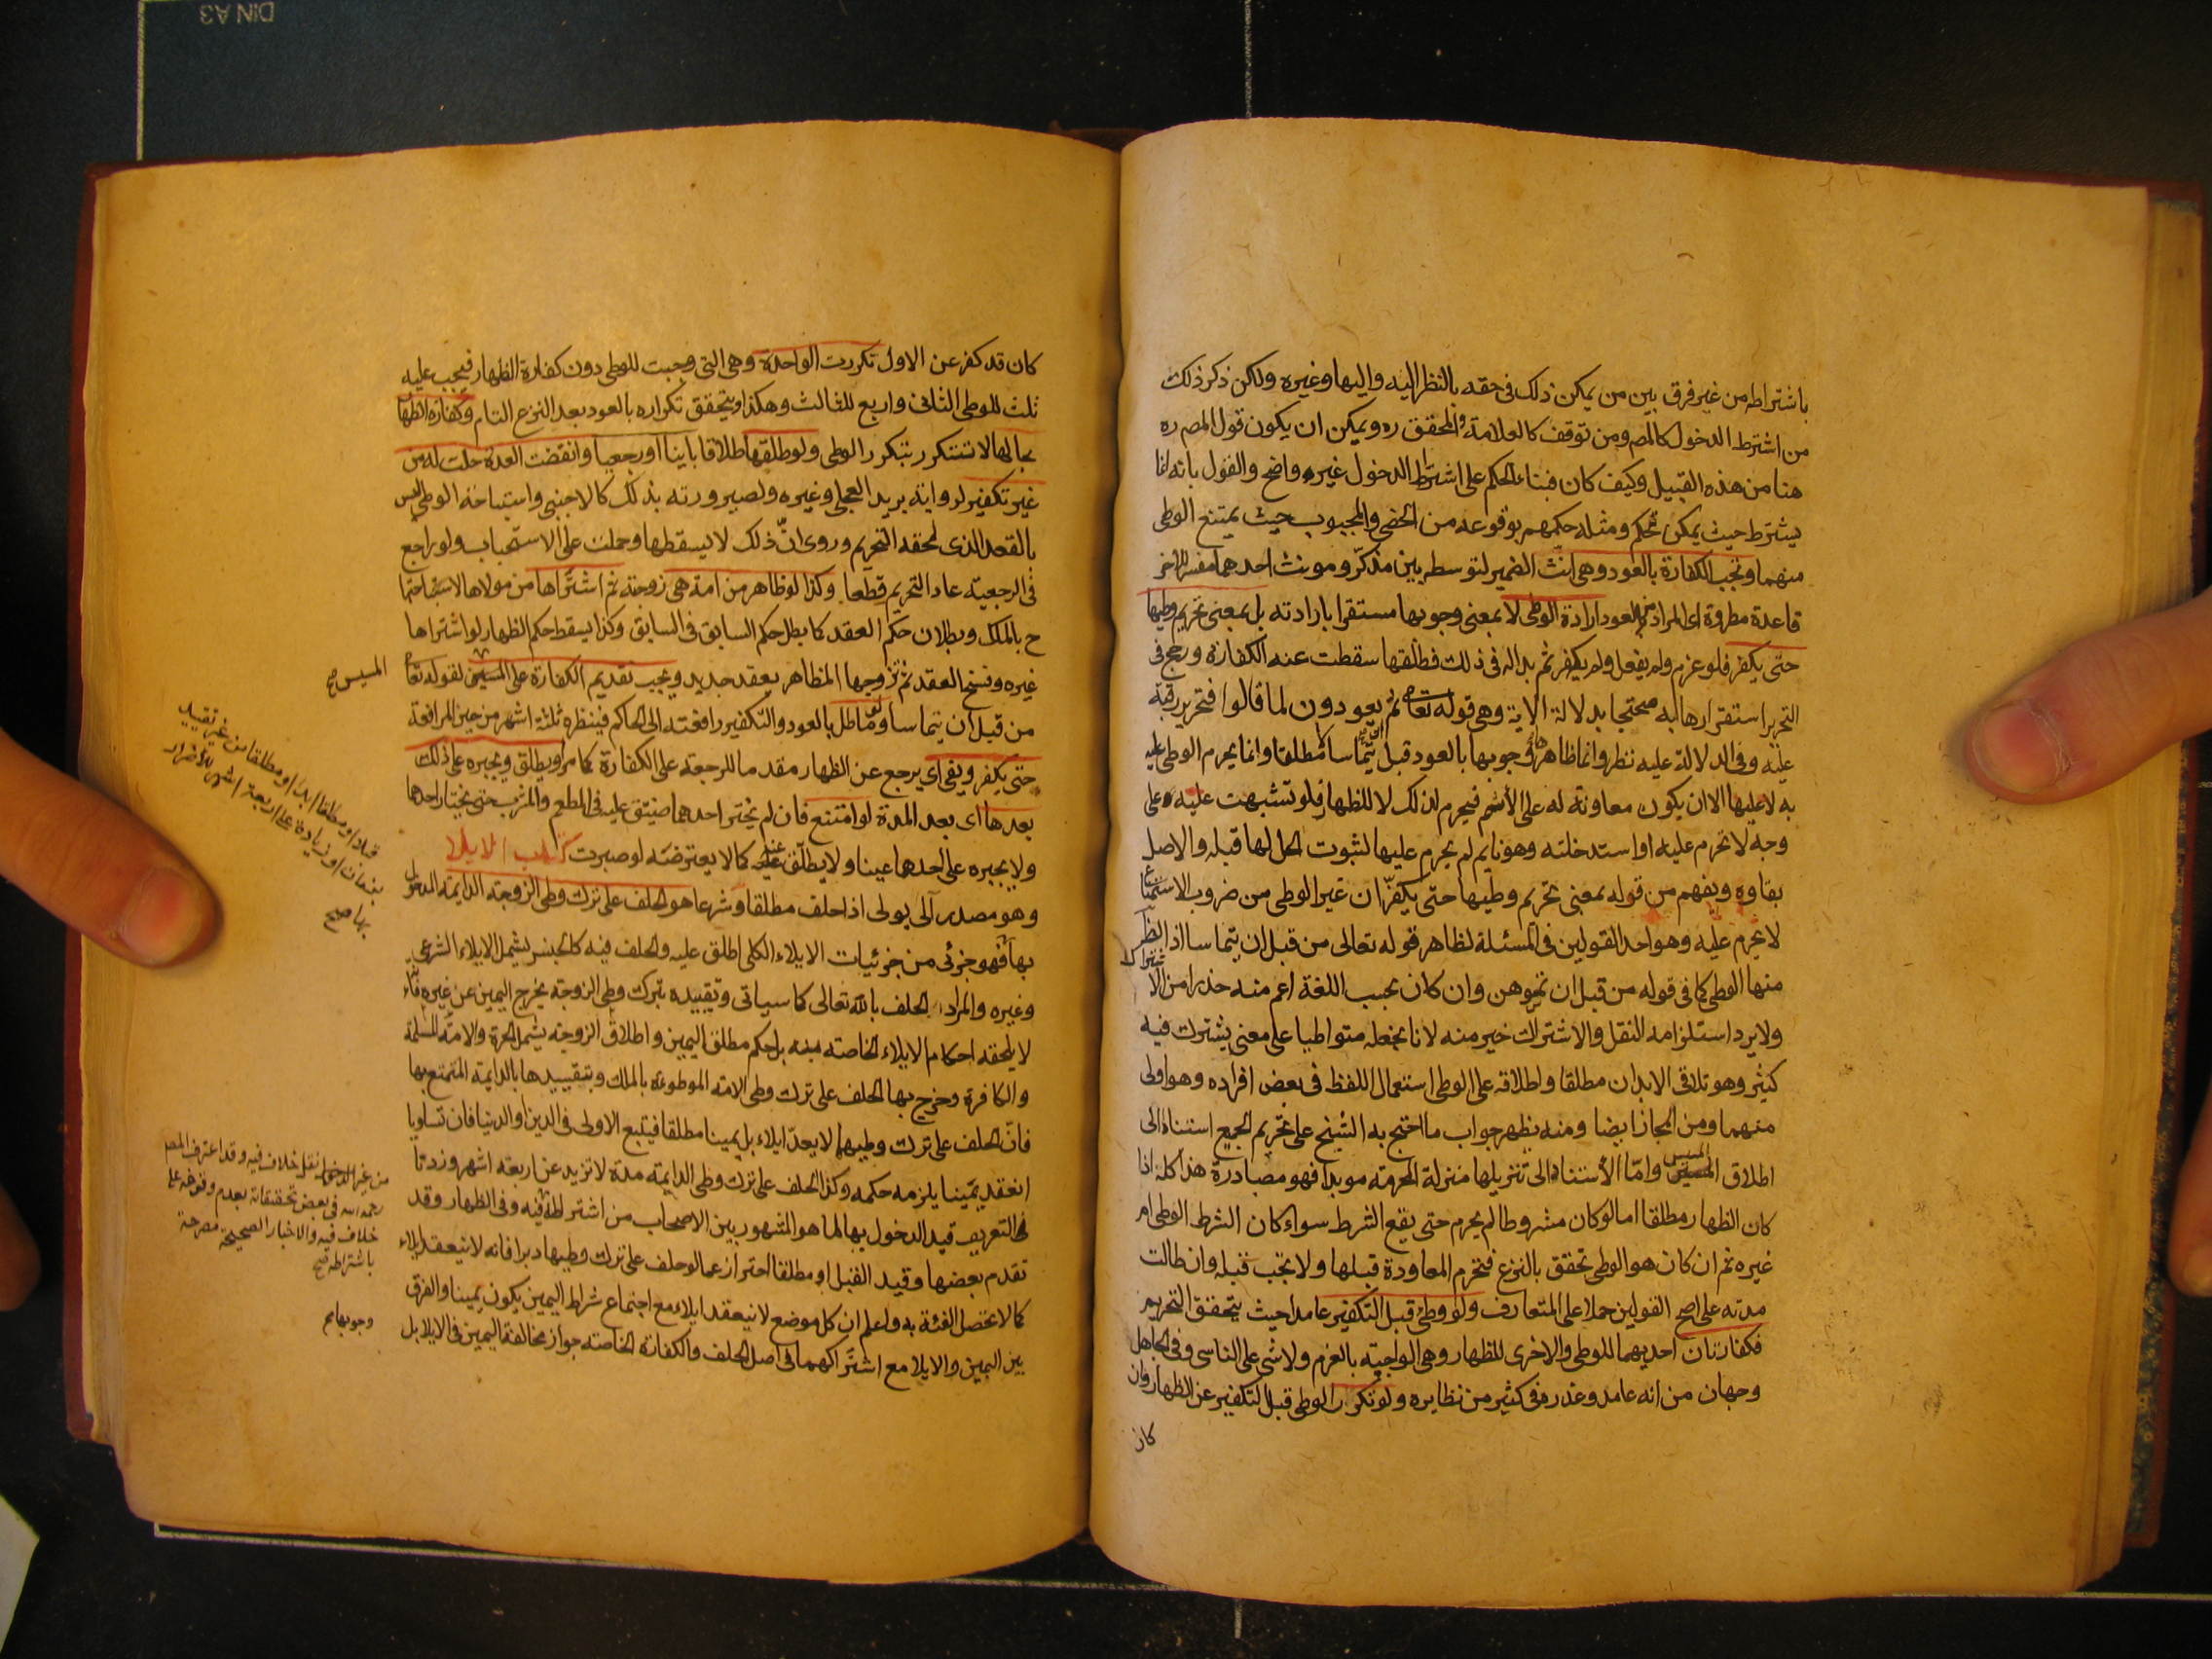 باشتراطه من غير فرق بين من يمكن ذلك في حقه بالنظر اليه واليها وغيره ولكن ذكر ذلك
من اشترط الدخول كالمص ومن توقف كالعلامة والمحقق ره ويمكن ان يكون قول المص ره
هنا من هذه القبيل وكيف كان فبناء الحكم على اشتراط الدخول غيره واضح والقول بانه انما
يشترط حيث يمكن تحكم ومثله حكمهم بوقوعه من الخصي والمجبوب حيث يمتنع الوطي
منهما وتجب الكفارة بالعود وهى انث الضمير لتوسطه بين مذكر ومونث احدهما مفسر للاخر
قاعدة مطروة اى المراد من العود ارادة الوطى لا بمعنى وجوبها مستقرا بارادته بل بمعنى تحريم وطيها
حتى يكفر فلو عزم ولم يفعل ولم يكفر ثم بدا له في ذلك فطلقها سقطت عنه الكفارة ورجح في
التحرير استقرارها به محتجا بدلالة الاية وهى قوله تعالى ثم يعودون لما قالوا فتحرير رقبة
عليه وفي الدلالة عليه نظر وانما ظاهرها وجوبها بالعود قبل ان يتماسا لا مطلقا وانما يحرم الوطى عليه
به لا عليها الا ان يكون معاونة له على الأثم فيحرم لذلك لا للظهار فلو تشبهت عليه على
وجه لا تحرم عليه او استدخلته وهو نايم لم يحرم عليها لثبوت الحل لها قبله والاصل
بقاوه ويفهم من قوله بمعنى تحريم وطيها حتى يكفر ان غير الوطى من ضروب الاستمتاع
لا يحرم عليه وهو احد القولين في المسئلة لظاهر قوله تعالى من قبل ان يتماسا اذ الظاهر
منها الوطى كما في قوله من قبل ان تمسوهن وان كان بحسب اللغة اعم منه حذرا من الاشتراك
ولا يرد استلزامه النقل والاشتراك خير منه لانا نجعله متواطيا على معنى يشترك فيه
كثير وهو تلاقى الابدان مطلقا واطلاقه على الوطى استعمال اللفظ في بعض افراده وهو اولى
منهما ومن المجاز ايضا ومنه يظهر جواب ما احتج به الشيخ على تحريم الجميع استنادا الى
اطلاق المسيس واما الأستناد الى تنزيلها منزلة المحرمة موبدا فهو مصادرة هذا كله اذا
كان الظهار مطلقا اما لو كان مشروطا لم يحرم حتى يقع الشرط سواء كان الشرط الوطى ام
غيره ثم ان كان هو الوطى تحقق بالنزع فتحرم المعاودة قبلها ولا تجب قبله وان طالت
مدته على اصح القولين حملا على المتعارف ولو وطئ قبل التكفير عامدا حيث يتحقق التحريم
فكفارتان احديهما للوطى والاخرى للظهار وهى الواجبة بالعزم ولا شى على الناسى وفى الجاهل
وجهان من انه عامد وعذره في كثير من نظايره ولو تكرر الوطى قبل التكفير عن الظهار وان
كان
كان قد كفر عن الاول تكررت الواحدة وهى التى وجبت للوطى دون كفارة الظهار فيجب عليه
ثلث للوطى الثانى واربع للثالث وهكذا ويتحقق تكراره بالعود بعد النزع التام وكفارة الظهار
بحالها لا تتكرر بتكرر الوطى ولو طلقها طلاقا باينا او رجعيا وانقضت العدة حلت له من
غير تكفير لرواية بريد العجلى وغيره ولصيرورته بذلك كالاجنبى واستباحة الوطى ليس
بالعقد الذى لحقه التحريم وروى ان ذلك لا يسقطها وحملت على الاستحباب ولو راجع
فى الرجعية عاد التحريم قطعا وكذا لو ظاهر من امة هى زوجته ثم اشتراها من مولاها لاستباحتها
ح بالملك وبطلان حكم العقد كما بطل حكم السابق في السابق وكذا يسقط حكم الظهار لو اشتراها
غيره وفسخ العقد ثم تزوجها المظاهر بعقد جديد ويجب تقديم الكفارة على المسيس لقوله تعالى
المسيس صح
من قبل ان يتماسا ولو ماطل بالعود والتكفير رافعته الى الحاكم فينظره ثلثة اشهر من حين المرافعة
حتى يكفر ويفى اى يرجع عن الظهار مقدما للرجعة على الكفارة كما مر او يطلق ويجبره على ذلك
بعدها اى بعد المدة لو امتنع فان لم يختر احدهما ضيق عليه فى المطعم والمشرب حتى يختار احدها
ولا يجبره على احدهما عينا ولا يطلق عنه كما لا يعترضه لو صبرت كتاب الايلاء
وهو مصدر آلى يولى اذا حلف مطلقا وشرعا هو الحلف على ترك وطى الزوجة الدايمة المدخول
بها فهو جزئى من جزئيات الايلاء الكلى اطلق عليه والحلف فيه كالجنس يشمل الايلاء الشرعى
وغيره والمراد الحلف بالله تعالى كما سياتى وتقييده بترك وطى الزوجة يخرج اليمين عن غيره فانه
لا يلحقه احكام الايلاء الخاصة به بل حكم مطلق اليمين واطلاق الزوجة يشمل الحرة والامة المسلمة
والكافرة وخرج بها الحلف على ترك وطى الامة الموطوءة بالملك وبتقييدها بالدايمة المتمتع بها
فان الحلف على ترك وطيهما لا يعد ايلاء بل يمينا مطلقا فيتبع الاولى فى الدين او الدنيا فان تساويا
انعقد يمينا يلزمه حكمه وكذا الحلف على ترك وطى الدايمة مدة لا تزيد عن اربعة اشهر وزدنا
فى التعريف قيد الدخول بها لما هو المشهور بين الاصحاب من اشتراطه فيه وفى الظهار وقد
تقدم بعضها وقيد القبل او مطلقا احترازا عما لو حلف على ترك وطيها دبرا فانه لا ينعقد ايلاء
كما لا تحصل الفئة به واعلم ان كل موضع لا ينعقد ايلاء مع اجتماع شرائط اليمين يكون يمينا والفرق
بين اليمين والايلا مع اشتراكهما فى اصل الحلف والكفارة الخاصة جواز مخالفة اليمين فى الايلا بل
قبلا او مطلقا ابدا او مطلقا من غير تقييد
بزمان او زيادة على اربعة اشهر للاضرار
بها صح
من غير نقل خلاف فيه وقد اعترف المص
رحمه الله فى بعض تحقيقاته بعدم وقوفه على
خلاف فيه والاخبار الصحيحة مصرحة
باشتراطه صح
وجوبها